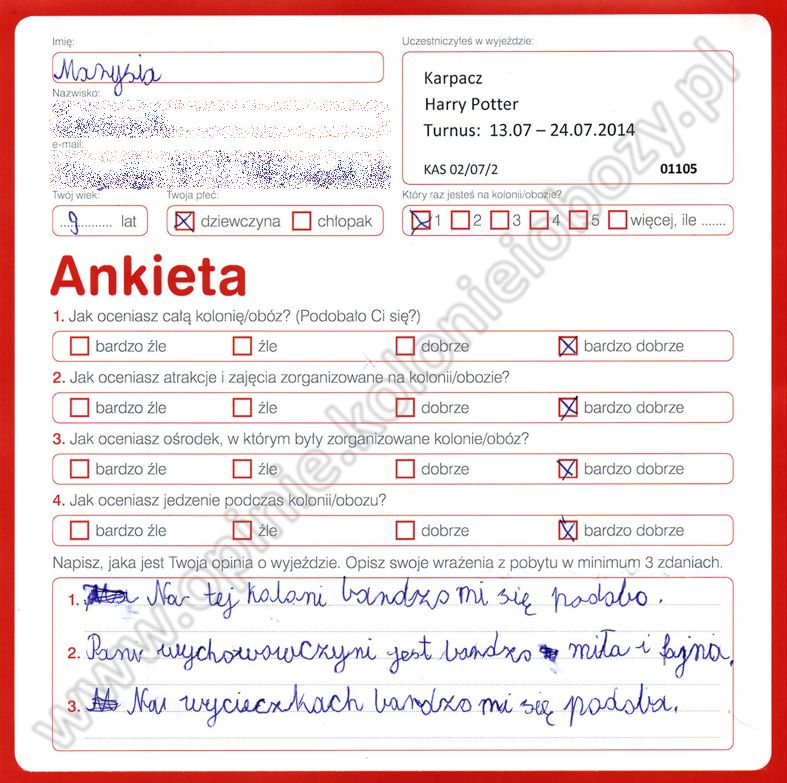 Imię:
Marysia
Nazwisko:
e-mail:
Twój wiek:
...9........... lat
Twoja płeć:
dziewczyna chłopak
Uczestniczyłeś w wyjeździe:
Karpacz
Harry Potter
Turnus: 13.07 – 24.07.2014
KAS 02/07/2 01105
Który raz jesteś na kolonii/obozie?
1 2 3 4 5 więcej, ile .......
Ankieta
1. Jak oceniasz całą kolonię/obóz? (Podobało Ci się?)
bardzo źle źle dobrze bardzo dobrze
2. Jak oceniasz atrakcje i zajęcia zorganizowane na kolonii/obozie?
bardzo źle źle dobrze bardzo dobrze
3. Jak oceniasz ośrodek, w którym były zorganizowane kolonie/obóz?
bardzo źle źle dobrze bardzo dobrze
4. Jak oceniasz jedzenie podczas kolonii/obozu?
bardzo źle źle dobrze bardzo dobrze
Napisz, jaka jest Twoja opinia o wyjeździe. Opisz swoje wrażenia z pobytu w minimum 3 zdaniach.
1. Na tej kolani bardzo mi się podobo.
2. Pani wychowowczyni jest bardzo miła i fajna.
3. Na wycieczkach bardzo mi się podoba.
www.opinie.kolonieiobozy.pl